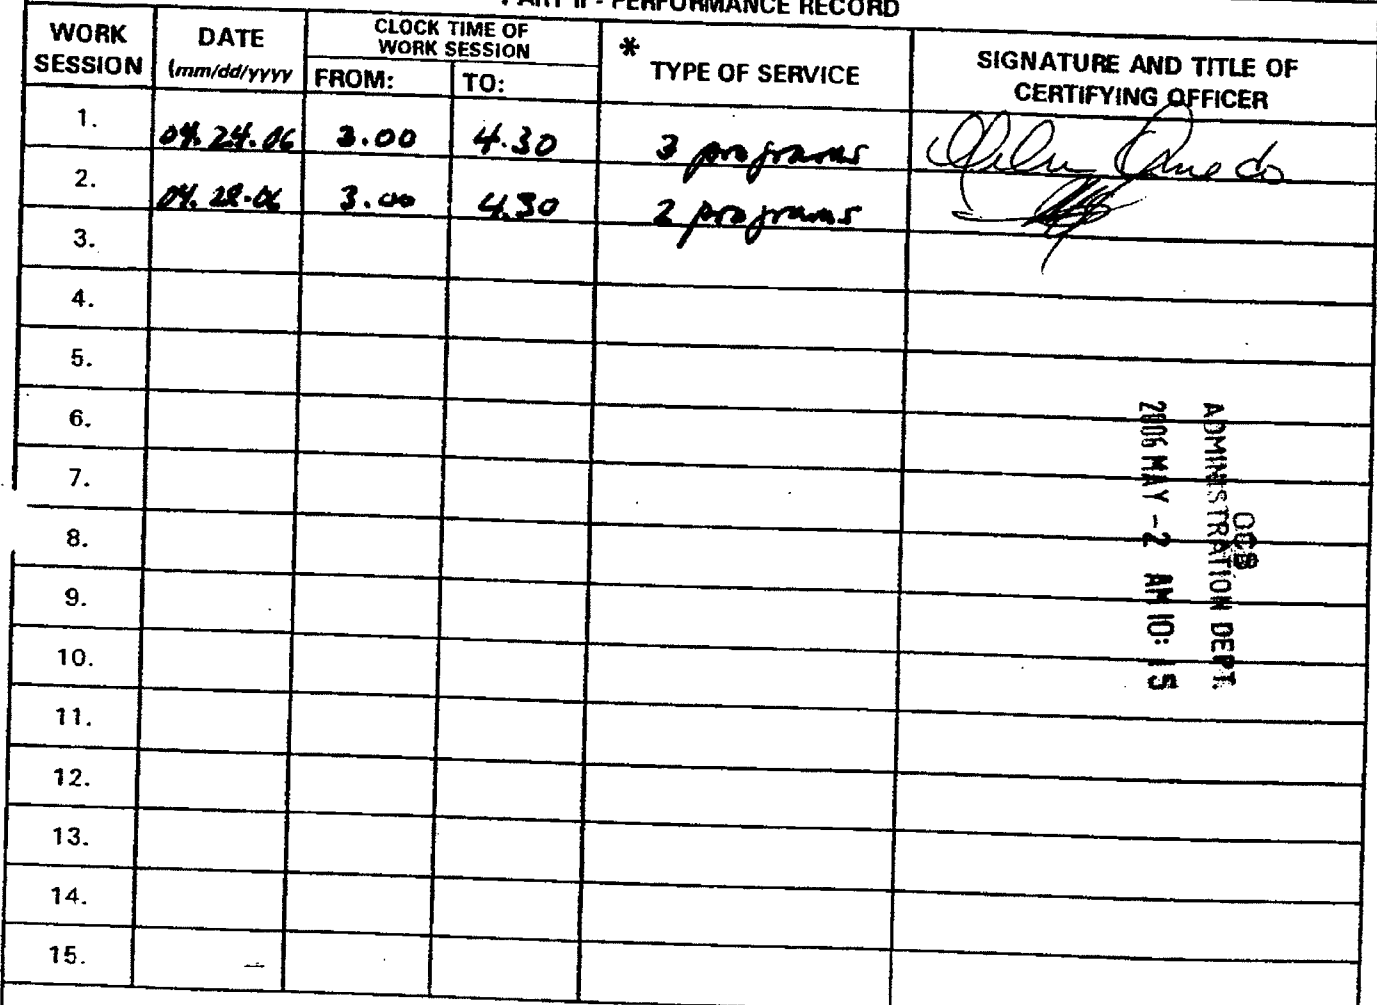 PART II - PERFORMANCE RECORD
WORK SESSION
DATE
(mm/dd/yyyy
CLOCK TIME OF WORK SESSION
FROM:
TO:
*
TYPE OF SERVICE
SIGNATURE AND TITLE OF CERTIFYING OFFICER
1. 04.24.06 3.00 4.30 3 programs
2. 04.28.06 3.00 4.30 2 programs
3.
4.
5.
6.
7.
8.
9.
10.
11.
12.
13.
14.
15.
OCB
ADMINISTRATION DEPT.
2006 MAY -2 AM 10: 15